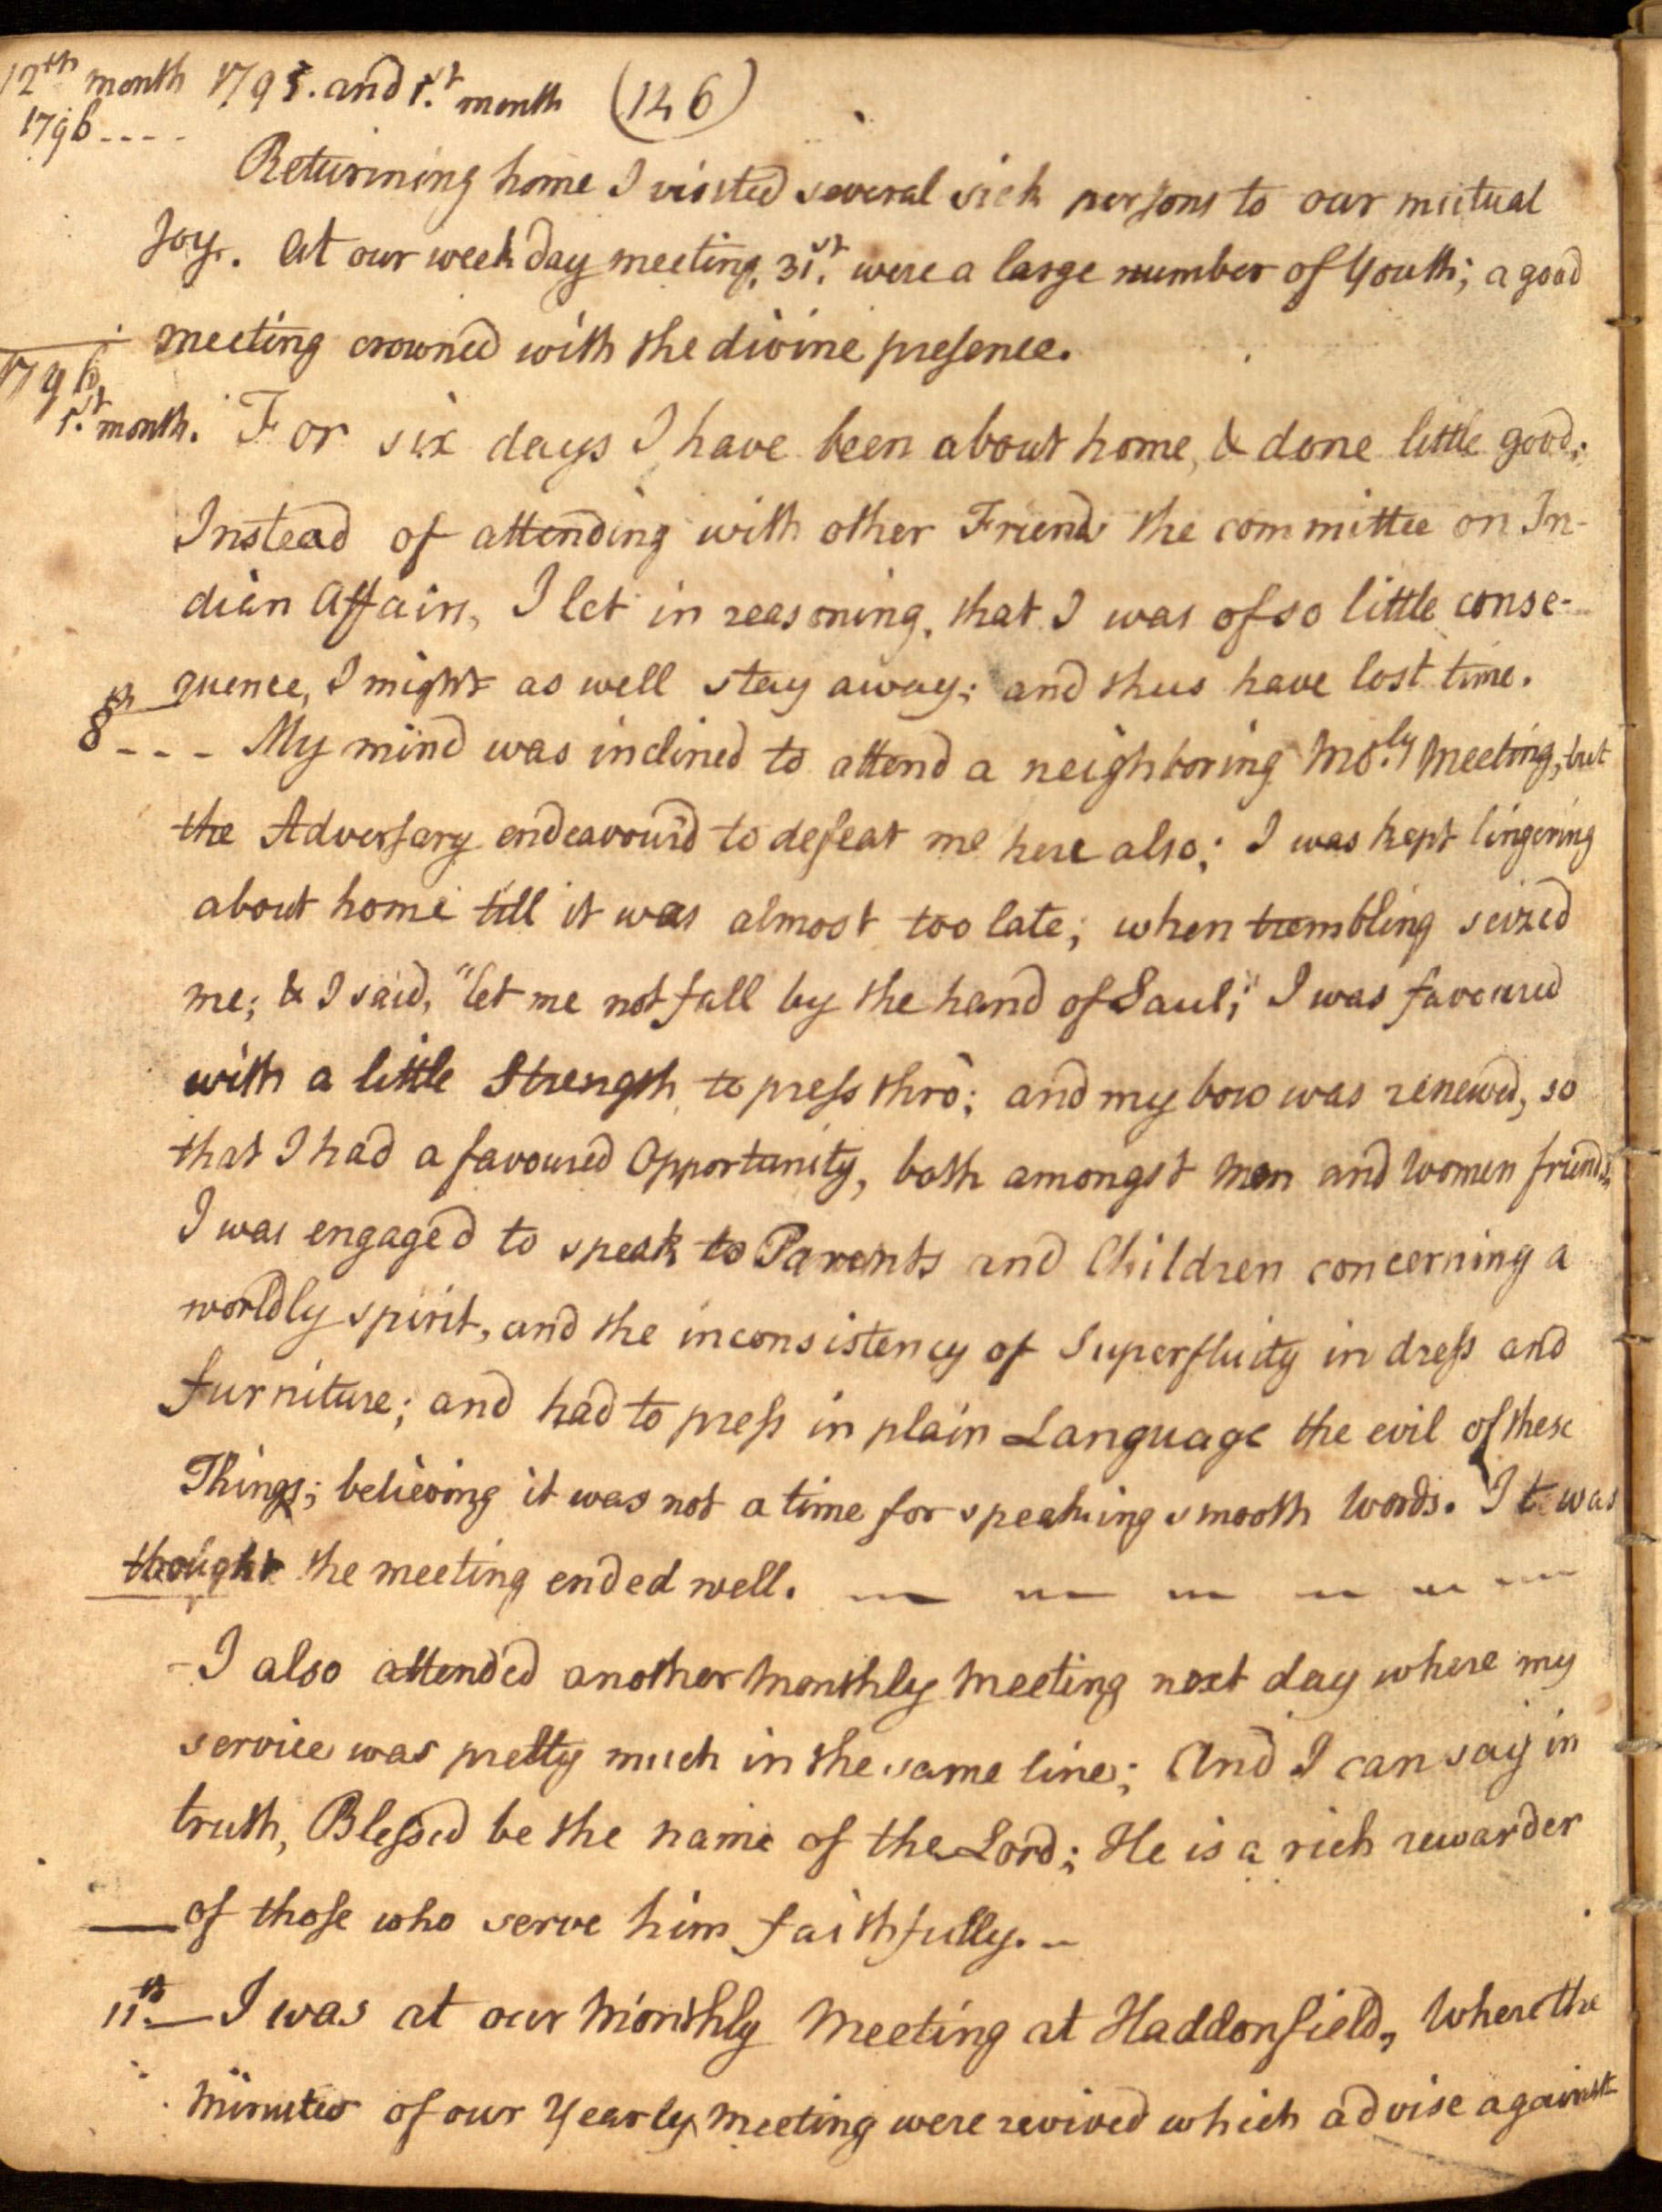 12th month 1795. and 1.st month (146)
1796----
Returning home I visited several sick persons to our mutual
Joy. At our week day meeting, 31.st were a large number of Youth; a good
meeting crowned with the divine presence.
1796,
1.st month. For six days I have been about home, & done little good;
Instead of attending with other Friends the committee on In-
dian Affairs, I let in reasoning, that I was of so little conse-
quence, I might as well stay away; and thus have lost time.
8th--- My mind was inclined to attend a neighboring Mo.ly Meeting, but
the Adversary endeavour'd to defeat me here also; I was kept lingering
about home till it was almost too late; when trembling seized
me; & I said, "let me not fall by the hand of Saul;" I was favoured
with a little Strength to press thro; and my bow was renewed, so
that I had a favoured Opportunity, both amongst Men and Women friends.
I was engaged to speak to Parents and Children concerning a
worldly spirit, and the inconsistency of Superfluity in dress and
furniture; and had to press in plain Language the evil of these
Things; believing it was not a time for speaking smooth Words. It was
thought the meeting ended well.
-I also attended another Monthly Meeting next day where my
service was pretty much in the same line; And I can say in
truth, Blessed be the name of the Lord; He is a rich rewarder
of those who serve him faithfully.-
11th.- I was at our Monthly Meeting at Haddonfield, Where the
Minutes of our Yearly Meeting were revived which advise against